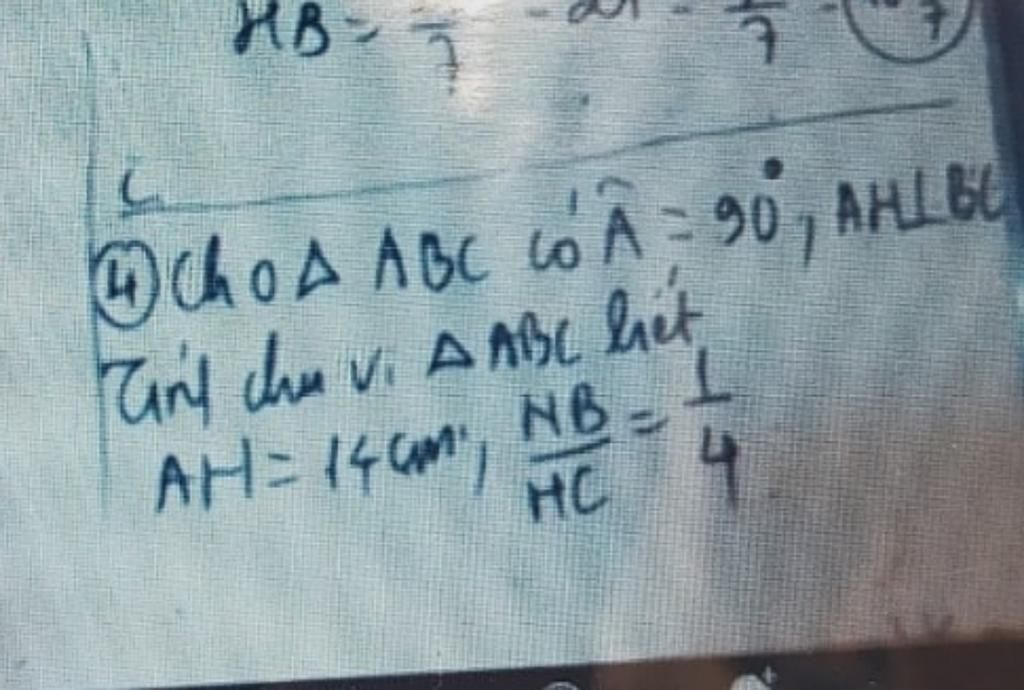 HB =
④ Cho Δ ABC có Â = 90°, AH⊥BC
Tính chu vi Δ ABC biết
AH = 14 cm, HB/HC = 1/4